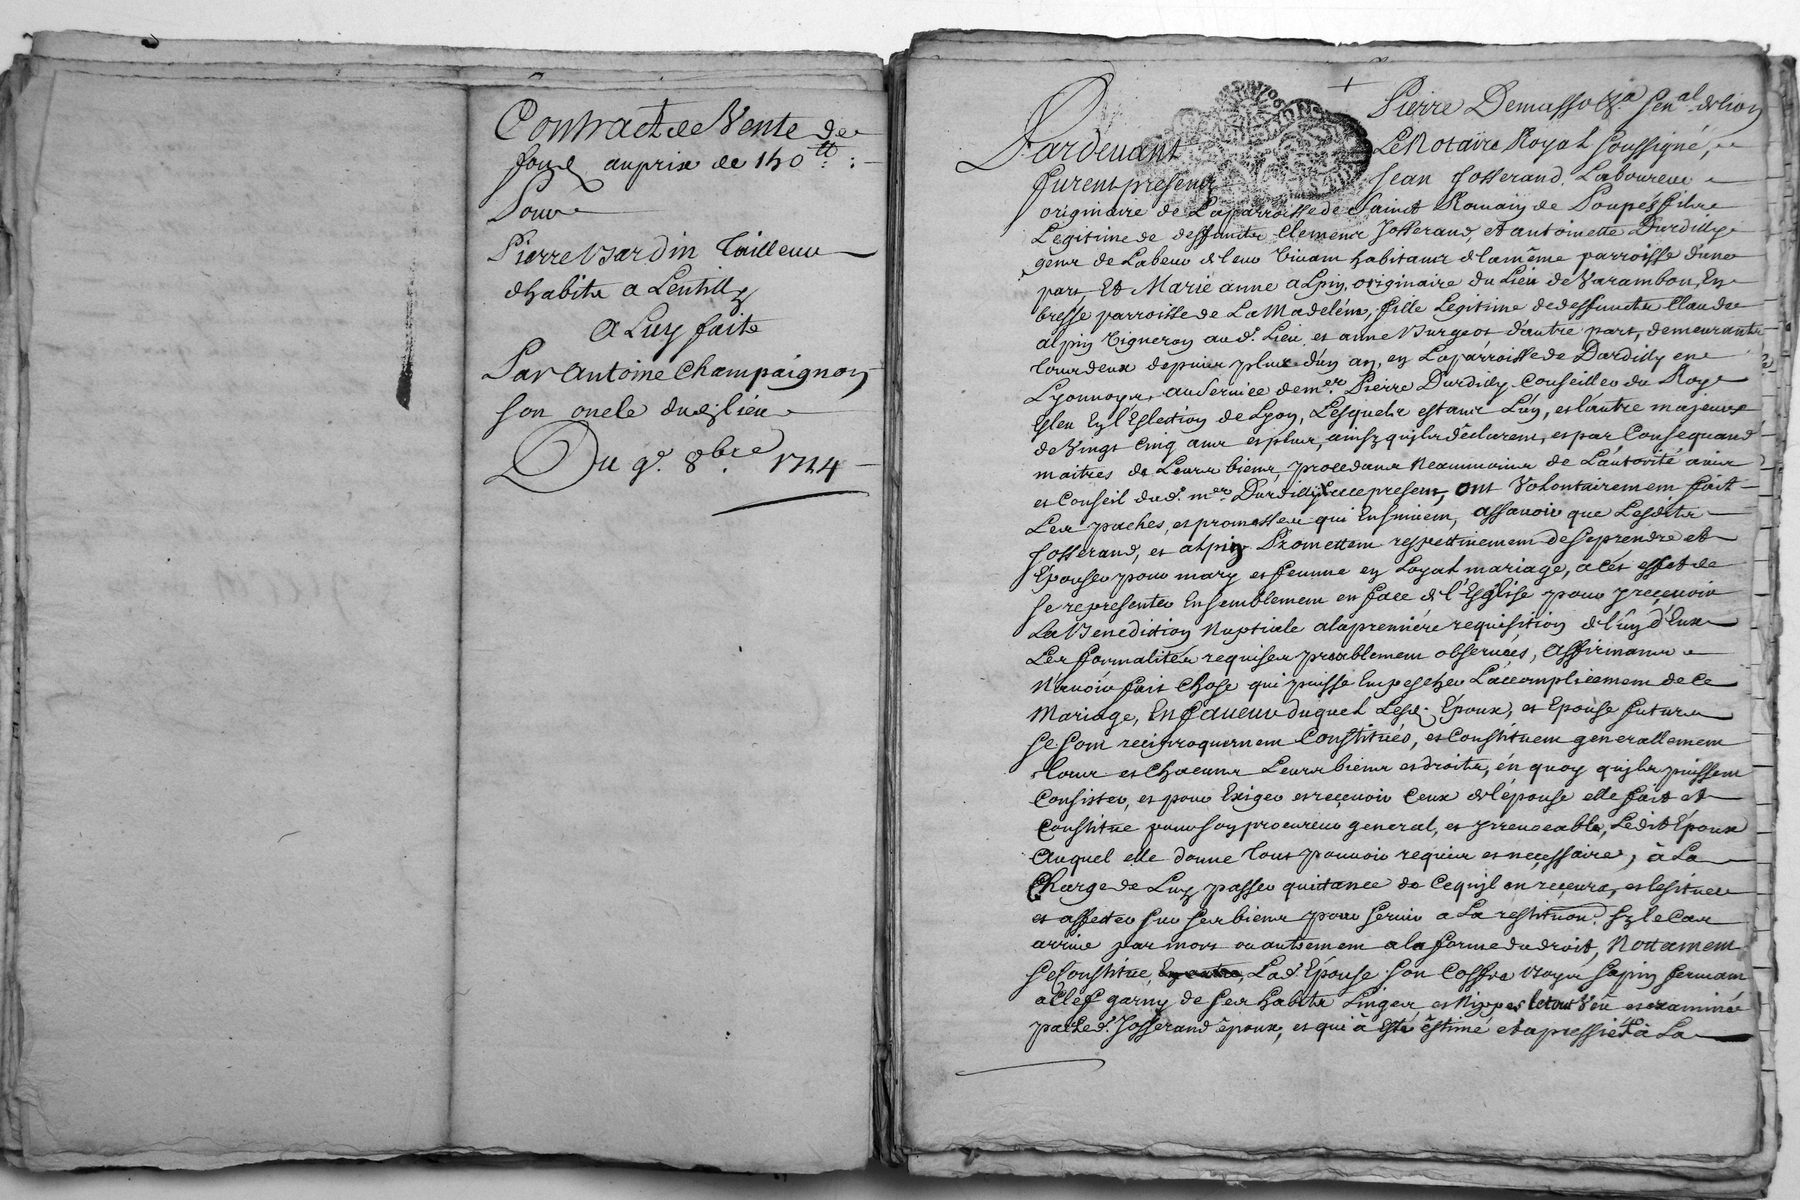 Contract de Vente de
fond au prix de 150 tt :
Pour
Pierre Vardin Tailleur
dhabits a Lentilly
a Luy faite
Par Antoine Champaignon
son oncle dud. lieu
Du 9e. 8bre 1714
Pierre Demasso Senal. de lion
Pardevant Le Notaire Royal soussigné,
furent presents Jean Josserand Laboureur
originaire de Laparroisse de Saint Romain de Poupes filz
Legitime de deffuncts Clement Josserand, et antoinette Durdilly
gens de Labeur de leur vivant habitants de la même parroisse d'une
part, Et Marie anne alpin, originaire du Lieu de Varambon, En
bresse parroisse de La Madeléne, fille Legitime de deffuncts Claude
alpin vigneron aud. Lieu, et anne Burgeot d'autre part, demeurants
tous deux depuis plus d'un an, en Laparroisse de Dardilly en
Lyonnoys, au service de mer. Pierre Durdilly Conseiller du Roy
Esleu En l'Eslection de Lyon, Lesquels estants L'un, et l'autre majeurs
de vingt Cinq ans et plus, ainsy quils déclarent, et par Consequand
maitres de Leurs biens, procedants Neanmoins de L'autorité avis
et Conseil dud. mer. Durdilly Icy present, ont volontairement fait
Les paches, et promesses qui Ensuivent, assavoir que Lesdits
Josserand, et alpin Promettent respectivement de se prendre et
Epouser pour mary et femme en Loyal mariage, a cet effet de
se representer Ensemblement en face de l'Eglise pour y recevoir
La Benediction Nuptiale a la premiére requisition de l'un d'Eux
Les formalités requises préablement observées, affirmants
N'avoir fait Chose qui puisse Empescher L'accomplicement de Ce
Mariage, En faveur duquel Lesd. Epoux, et Epouse futurs
se sont reciproquement Constitués, et Constituent generallement
tous et Chacuns Leurs biens et droits, en quoy quils puissent
Consister, et pour Exiger et recevoir Ceux de l'épouse elle fait et
Constitue pour son procureur general, et yrrevocable, Ledit Epoux
auquel elle donne tout pouvoir requis et necessaire, à La
Charge de Luy passer quittance de Cequil en recevra, et lesituer
et affecter sur ses biens pour servir a La restitution, sy le Cas
arrive par mort ou autrement a la forme du droit, Nottamment
se Constitue, Lad. Epouse son Coffre Boys sapin fermant
a Clef garny de ses habits Linges, et Nippes le tout Veu et examiné
par Led. Josserand époux, et qui à Esté éstimé et apressié à La